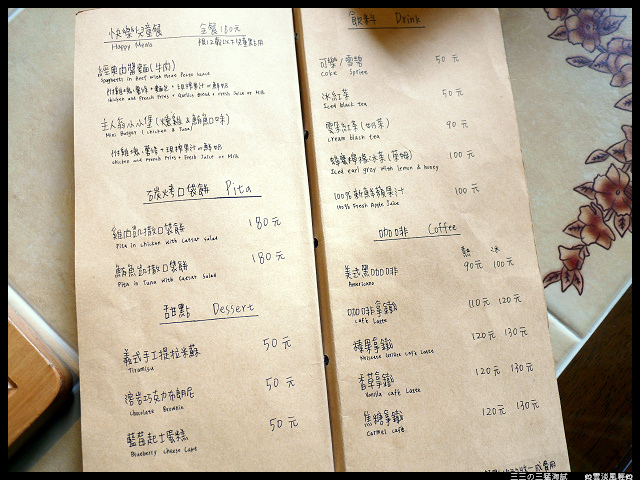 快樂兒童餐 全餐180元
Happy Meals
經典肉醬麵(牛肉)
Spaghetti in Beef with three Potes sauce
炸雞塊、薯條+麵包+現榨果汁or鮮奶
chicken and French Fries + Garlics Bread + Fresh Juice or Milk
主人翁小小堡(燻雞&鮪魚口味)
Mini Burger (chicken & Tuna)
炸雞塊、薯條+現榨果汁or鮮奶
chicken and French Fries + Fresh Juice or Milk
碳烤口袋餅 Pita
雞肉凱撒口袋餅 180元
Pita in chicken with Caesar salad
鮪魚凱撒口袋餅 180元
Pita in Tuna with Caesar Salad
甜點 Dessert
義式手工提拉米蘇 50元
Tiramisu
濃岩巧克力布朗尼 50元
chocolate Brownie
藍莓起士蛋糕 50元
Blueberry cheese Cake
飲料 Drink
可樂/雪碧 50元
Coke Sprite
冰紅茶 50元
Iced black tea
雲朵紅茶(奶茶) 90元
cream black tea
蜂蜜檸檬冰茶(茶咖) 100元
Iced earl gray with lemon & honey
100%新鮮蘋果汁 100元
100% Fresh Apple Juice
咖啡 Coffee
熱 冰
美式黑咖啡 90元 100元
Americano
咖啡拿鐵 110元 120元
café Latte
榛果拿鐵 120元 130元
café Latte
香草拿鐵 120元 130元
Vanilla café Latte
焦糖拿鐵 120元 130元
Carmel café
三三の三猛海賊 雲淡風輕